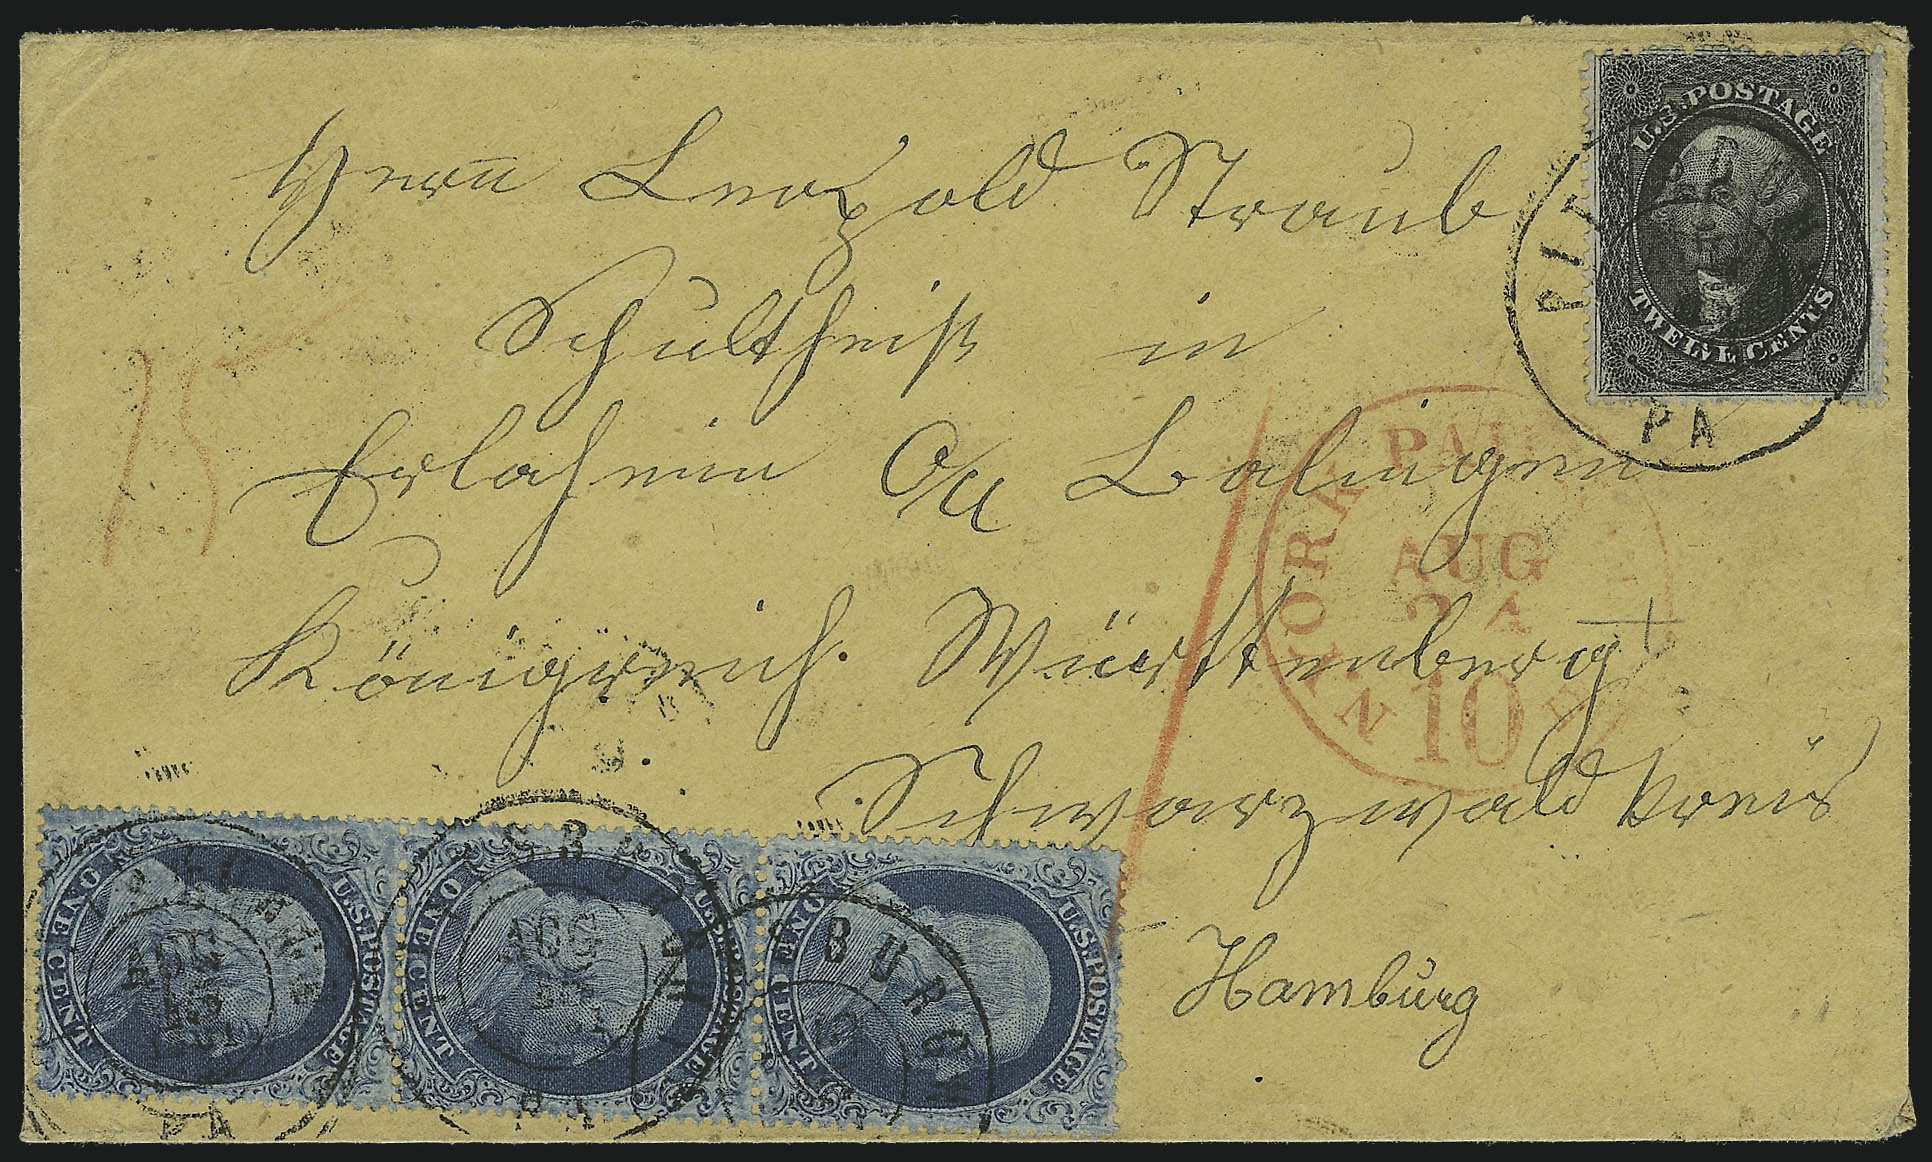 U.S. POSTAGE
TWELVE CENTS
PA
Herrn Leopold Straub
Schultheiß in
Erlaheim O/A Balingen
Königreich. Württemberg
Schwarzwald Kreis
Hamburg
15
NEW YORK
PAID
AUG
10
U.S. POSTAGE
ONE CENT
U.S. POSTAGE
ONE CENT
U.S. POSTAGE
ONE CENT
AUG
15
1861
PA
AUG
PA
BURGH